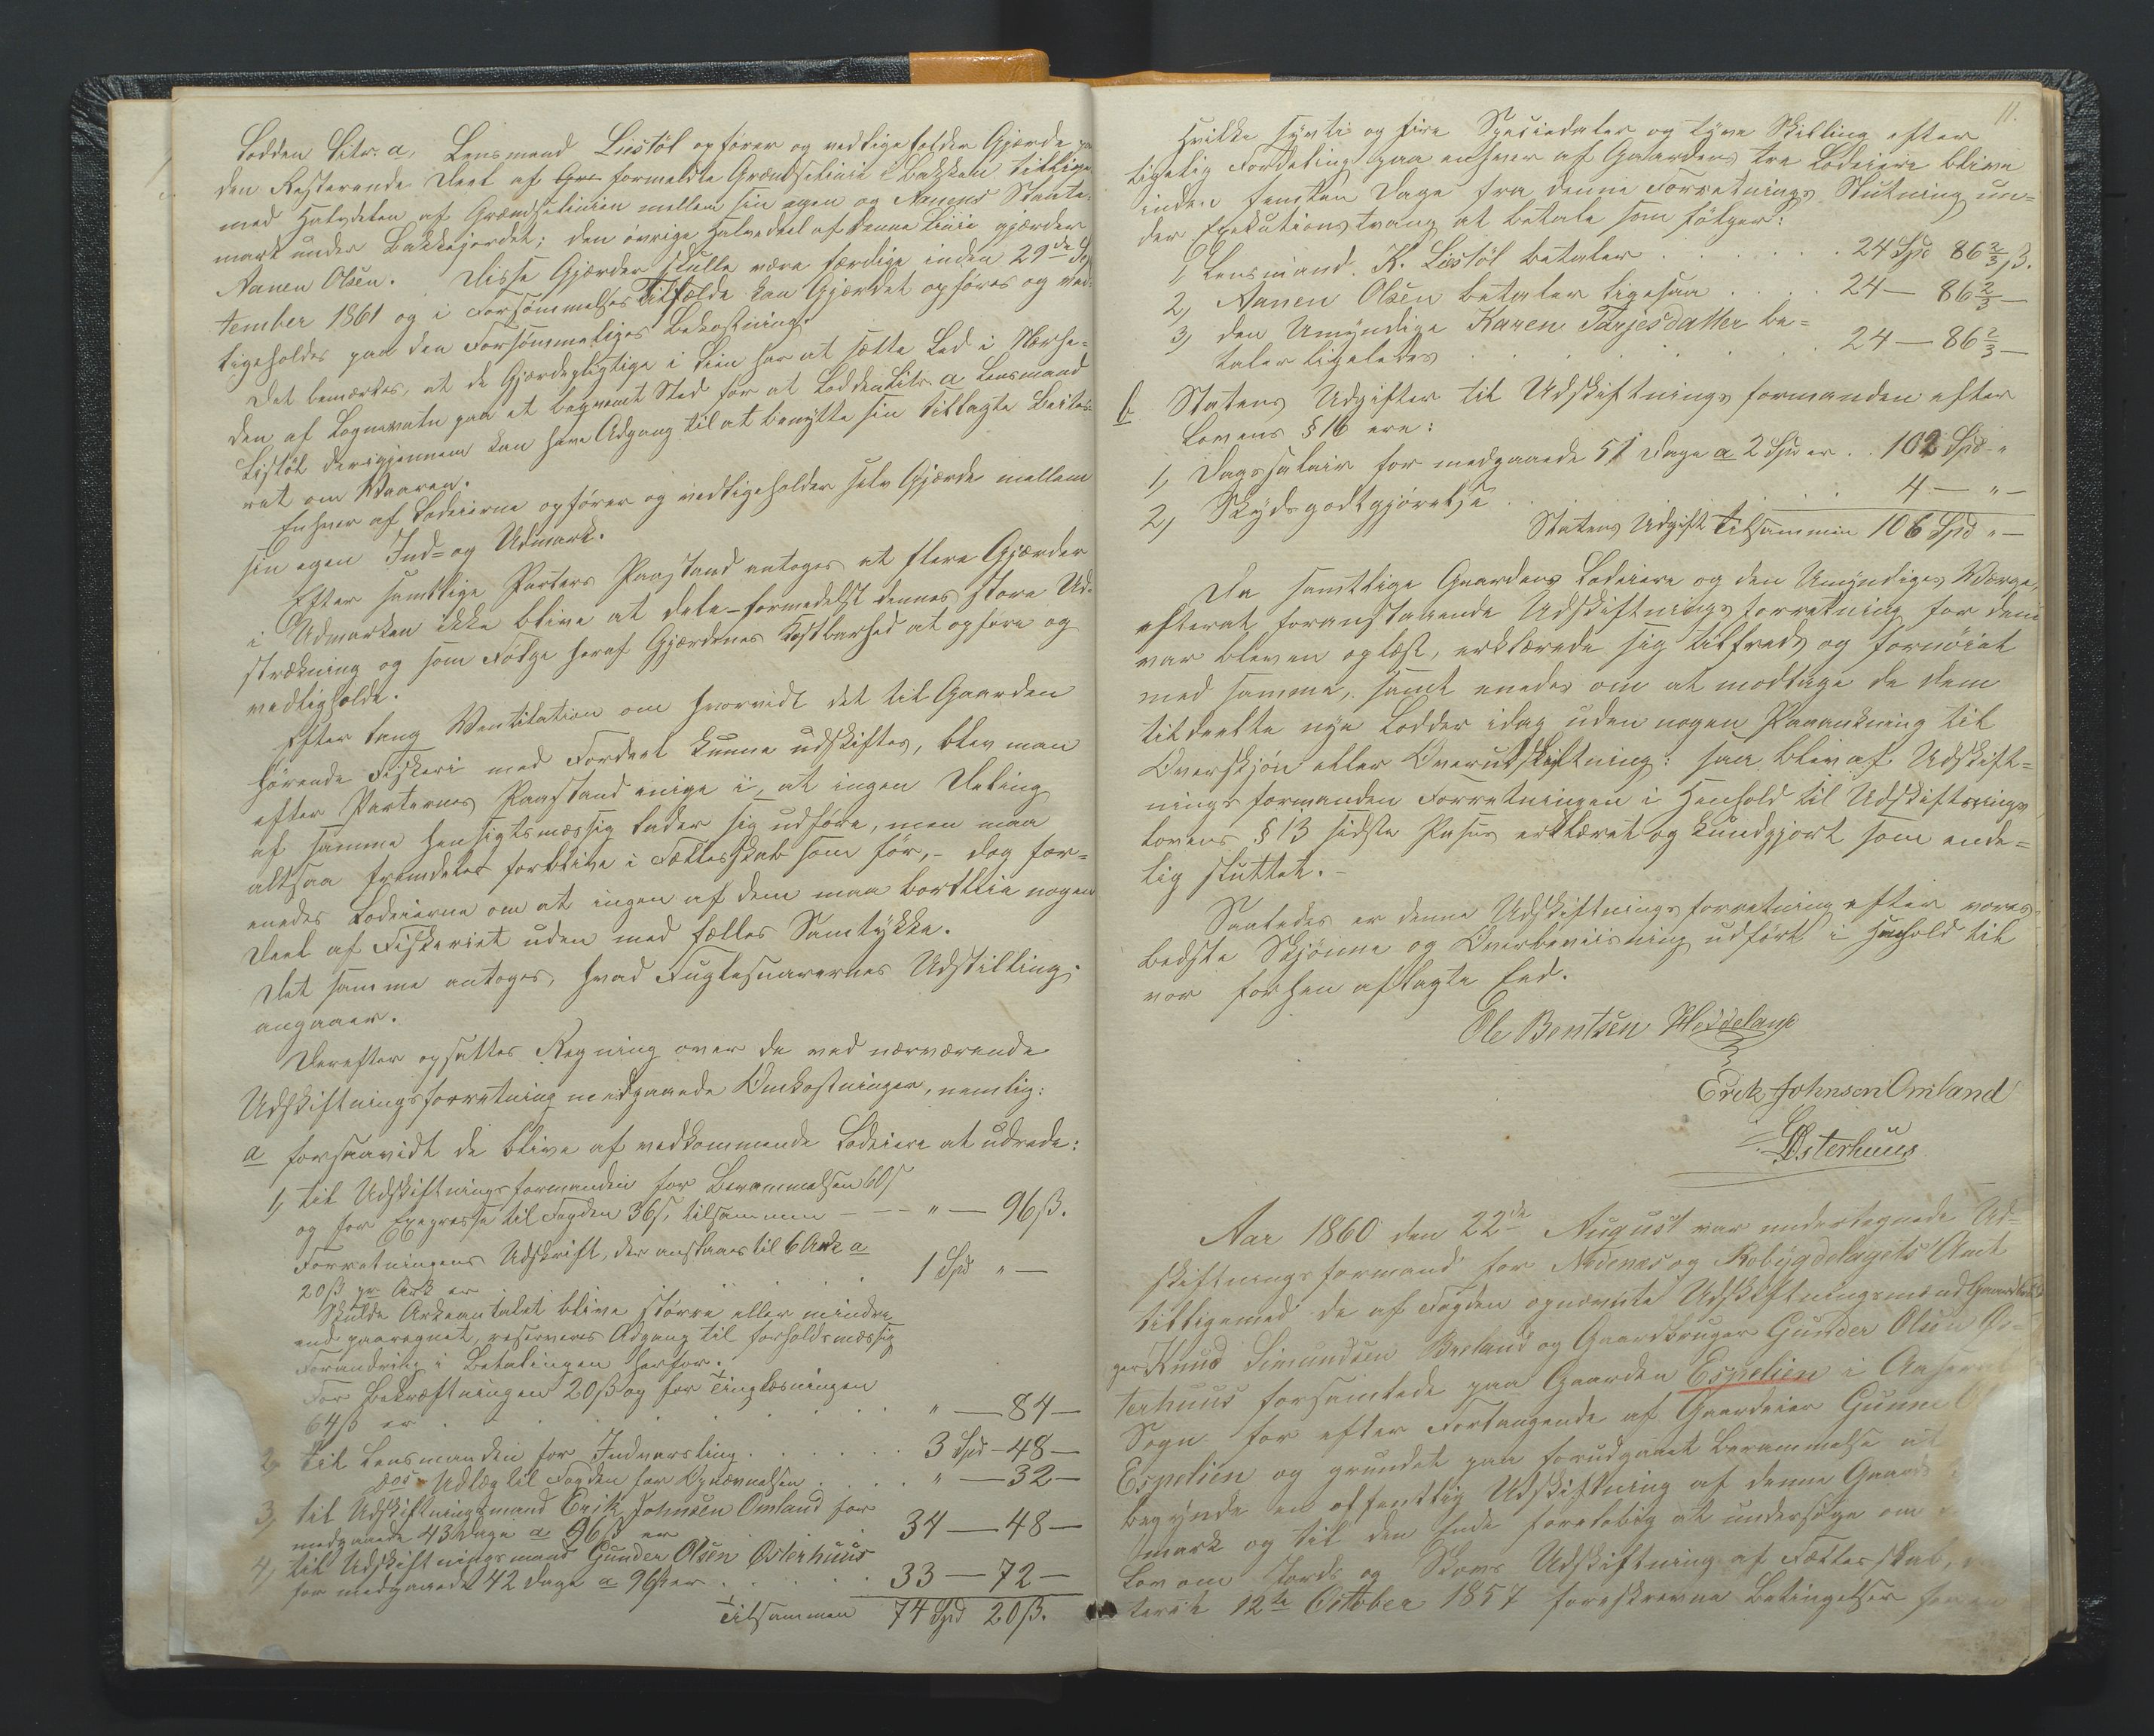 Lodden Litr. a, Lensmand Liestöl opfører og vedligeholder Gjærde paa
den Resterende Deel af Græ formeldte Grændselinie i Bakken tillige-
med Halvdelen af Grændselinien mellem sin egen og Aanens
mark under Bakkejordet; den øvrige Halvdeel af denne Linie gjærder
Aanen Olsen. Disse Gjærder skulle være færdige inden 29de Sep
tember 1861 og i Forsømmelses Tilfælde kan Gjærdet opføres og ved-
ligeholdes paa den Forsømmeliges Bekostning.
Det bemærkes, at de Gjærdepligtige i Lien har at sætte Led i Nærhe-
den af Lognavatn paa et beqvemt Sted for at Lodden Litr. a Lensmand
Liestöl derigjennem kan have Adgang til at benytte sin tillagte Beites-
ret om Vaaren.
Enhver af Lodeierne opfører og vedligeholder selv Gjærde mellem
sin egen Ind- og Udmark.
Efter samtlige Parters Paastand antoges at flere Gjærder
i Udmarken ikke blive at dele formedelst dennes store Ud-
strækning og som Følge heraf Gjærdenes Kostbarhed at opføre og
vedligeholde.
Efter lang Ventilation om hvorvidt det til Gaarden
hørende Fiskeri med Fordeel kunne udskiftes, blev man
efter Parternes Paastand enige i, at ingen Deling
af samme hensigtsmæssig lader sig udføre, men maa
altsaa fremdeles forblive i Fællesskab som før, - dog for-
enedes Lodeierne om at ingen af dem maa bortleie nogen
Deel af Fiskeriet uden med fælles Samtykke.
Det samme antoges, hvad Fuglesnarernes Udstilling
angaaer.
Derefter opsattes Regning over de ved nærværende
Udskiftningsforretning medgaaede Omkostninger, nemlig:
a forsaavidt de blive af vedkommende Lodeiere at udrede:
1, til Udskiftningsformanden for Berammelsen 60ß
og for Expresse til Fogden 36ß, tilsammen - - - " — 96ß.
Forretningens Udskrift, der anslaaes til 6 Ark a
20ß pr Ark er . . . . . . 1 Spd " —
Skulde Arkeantallet blive større eller mindre
end paaregnet, reserveres Adgang til forholdsmæssig
Forandring i Betalingen herfor.
For Bekræftningen 20ß og for Tinglæsningen
64ß er . . . . . . . . " — 84 —
2, til Lensmanden for Indvarsling . . . . . 3 Spd — 48 —
dos Udlæg til Fogden for Opnævnelsen . . . . " — 32 —
3, til Udskiftningsmand Erik Johnsen Omland for
medgaaede 43 Dage a 96ß er . . . . 34 — 48 —
4, til Udskiftningsmand Gunder Olsen Østerhuus
for medgaaede 42 Dage a 96ß er . . . . . 33 — 72 —
Tilsammen 74 Spd 20ß.
11.
Hvilke sytti og fire Speciedaler og tyve Skilling efter
ligelig Fordeling paa enhver af Gaardens tre Lodeiere blive
inden femten Dage fra denne Forretnings Slutning un=
der Exekutionstvang at betale som følger:
1, Lensmand K. Liestöl betaler . . . . . . 24 Spd 86⅔ß.
2, Aanen Olsen betaler ligesaa . . . . 24 — 86⅔ —
3, den Umyndige Karen Tarjesdatter be=
taler ligeledes . . . . . . . 24 — 86⅔ —
b Statens Udgifter til Udskiftningsformanden efter
Lovens § 16 ere:
1, Dagssalair for medgaaede 51 Dage a 2 Spd er . . 102 Spd "
2, Skydsgodtgjørelse . . . . . 4 — " —
Statens Udgift tilsammen 106 Spd " —
Da samtlige Gaardens Lodeiere og den Umyndiges Værge,
efterat foranstaaende Udskiftningsforretning for dem
var bleven oplæst, erklærede sig tilfreds og fornøiet
med samme, samt enedes om at modtage de dem
tildeelte nye Lodder idag uden nogen Paaankning til
Overskjøn eller Overutskiftning: saa blev af Udskift=
ningsformanden Forretningen i Henhold til Udskiftnings
lovens § 13 sidste Passus erklæret og kundgjort som ende=
lig sluttet. -
Saaledes er denne Udskiftningsforretning efter vores
bedste Skjønne og Overbeviisning udført i Henhold til
vor forhen aflagte Eed.
Ole Bentsen Heddeland
Erik Johnsen Omland
G O Østerhuus
Aar 1860 den 22de August var undertegnede Ud=
skiftningsformand for Nedenes og Robygdelagets Amt
tilligemed de af Fogden opnævnte Udskiftningsmænd Gaardbru
ger Knud Simundsen Breland og Gaardbruger Gunder Olsen Øs=
terhuus forsamlede paa Gaarden Espelien i Aaseral
Sogn for efter Forlangende af Gaardeier Gunne
Espelien og grundet paa forudgaaet Berammelse at
begynde en offentlig Udskiftning af denne Gaards
mark og til den Ende foreløbig at undersøge om
Lov om Jords og Skovs Udskiftning af Fællesskab,
teret 12te October 1857 foreskrevne Betingelser for en